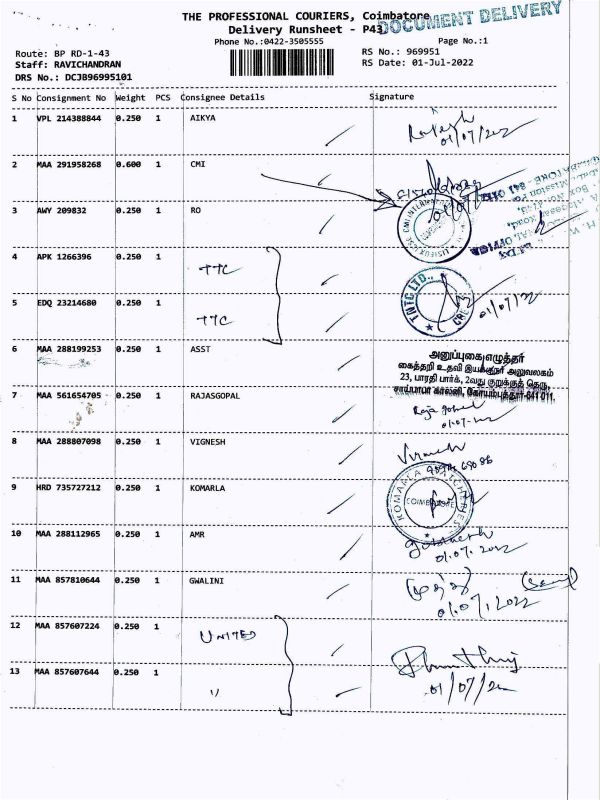 THE PROFESSIONAL COURIERS, Coimbatore
DOCUMENT DELIVERY
Delivery Runsheet - P43
Phone No.:0422-3505555
Page No.:1
Route: BP RD-1-43
RS No.: 969951
Staff: RAVICHANDRAN
RS Date: 01-Jul-2022
DRS No.: DCJB96995101
S No Consignment No Weight PCS Consignee Details Signature
1 VPL 214388844 0.250 1 AIKYA
01/07/2022
2 MAA 291958268 0.600 1 CMI
3 AWY 209832 0.250 1 RO
4 APK 1266396 0.250 1 TTC
TNTC LTD.,
01/07/22
5 EDQ 23214680 0.250 1 TTC
6 MAA 288199253 0.250 1 ASST
அனுப்புகை எழுத்தர்
கைத்தறி உதவி இயக்குநர் அலுவலகம்
23, பாரதி பார்க், 2வது குறுக்குத் தெரு,
சாய்பாபா காலனி, கோயம்புத்தூர்-641 011.
7 MAA 561654705 0.250 1 RAJASGOPAL
Raja gopal
01.07.2022
8 MAA 288807098 0.250 1 VIGNESH
Vignesh
9 HRD 735727212 0.250 1 KOMARLA
KOMARLA HATCHERIES
COIMBATORE
10 MAA 288112965 0.250 1 AMR
01.07.2022
11 MAA 857810644 0.250 1 GWALINI
01.07.2022
12 MAA 857607224 0.250 1 UNITED
13 MAA 857607644 0.250 1 "
01/07/22